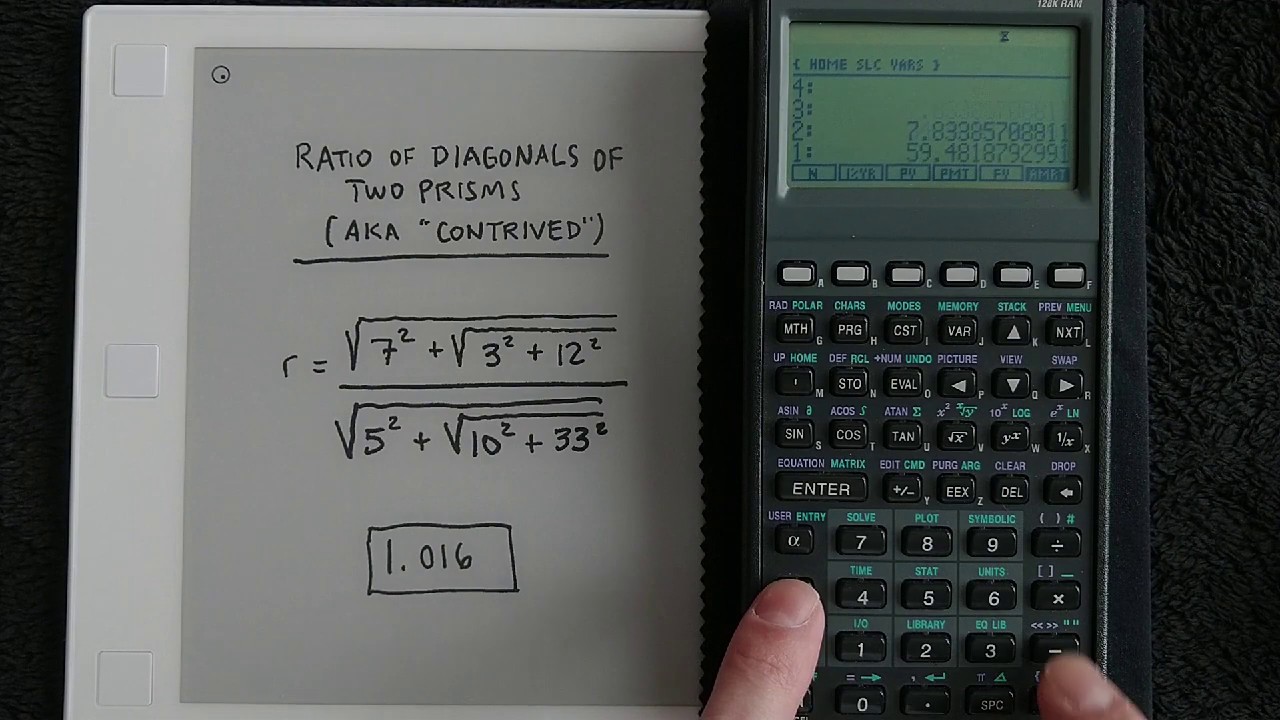 128K RAM
{ HOME SLC VARS }
4:
3:
2: 7.83385708811
1: 59.4818792991
N I%YR PV PMT FV AMRT
RATIO OF DIAGONALS OF
TWO PRISMS
(AKA "CONTRIVED")
r = √(7² + √(3² + 12²)) / √(5² + √(10² + 33²))
1.016
A B C D E F
RAD POLAR CHARS MODES MEMORY STACK PREV MENU
MTH G PRG H CST I VAR J ▲ K NXT L
UP HOME DEF RCL →NUM UNDO PICTURE VIEW SWAP
' M STO N EVAL O ◀ P ▼ Q ▶ R
ASIN ∂ ACOS ∫ ATAN Σ x² ˣ√y 10ˣ LOG eˣ LN
SIN S COS T TAN U √x V yˣ W 1/x X
EQUATION MATRIX EDIT CMD PURG ARG CLEAR DROP
ENTER +/− Y EEX Z DEL
USER ENTRY SOLVE PLOT SYMBOLIC ( ) #
α 7 8 9 ÷
TIME STAT UNITS [ ] _
4 5 6 ×
I/O LIBRARY EQ LIB « » " "
1 2 3 −
= → , ↵ π ∠
0 . SPC